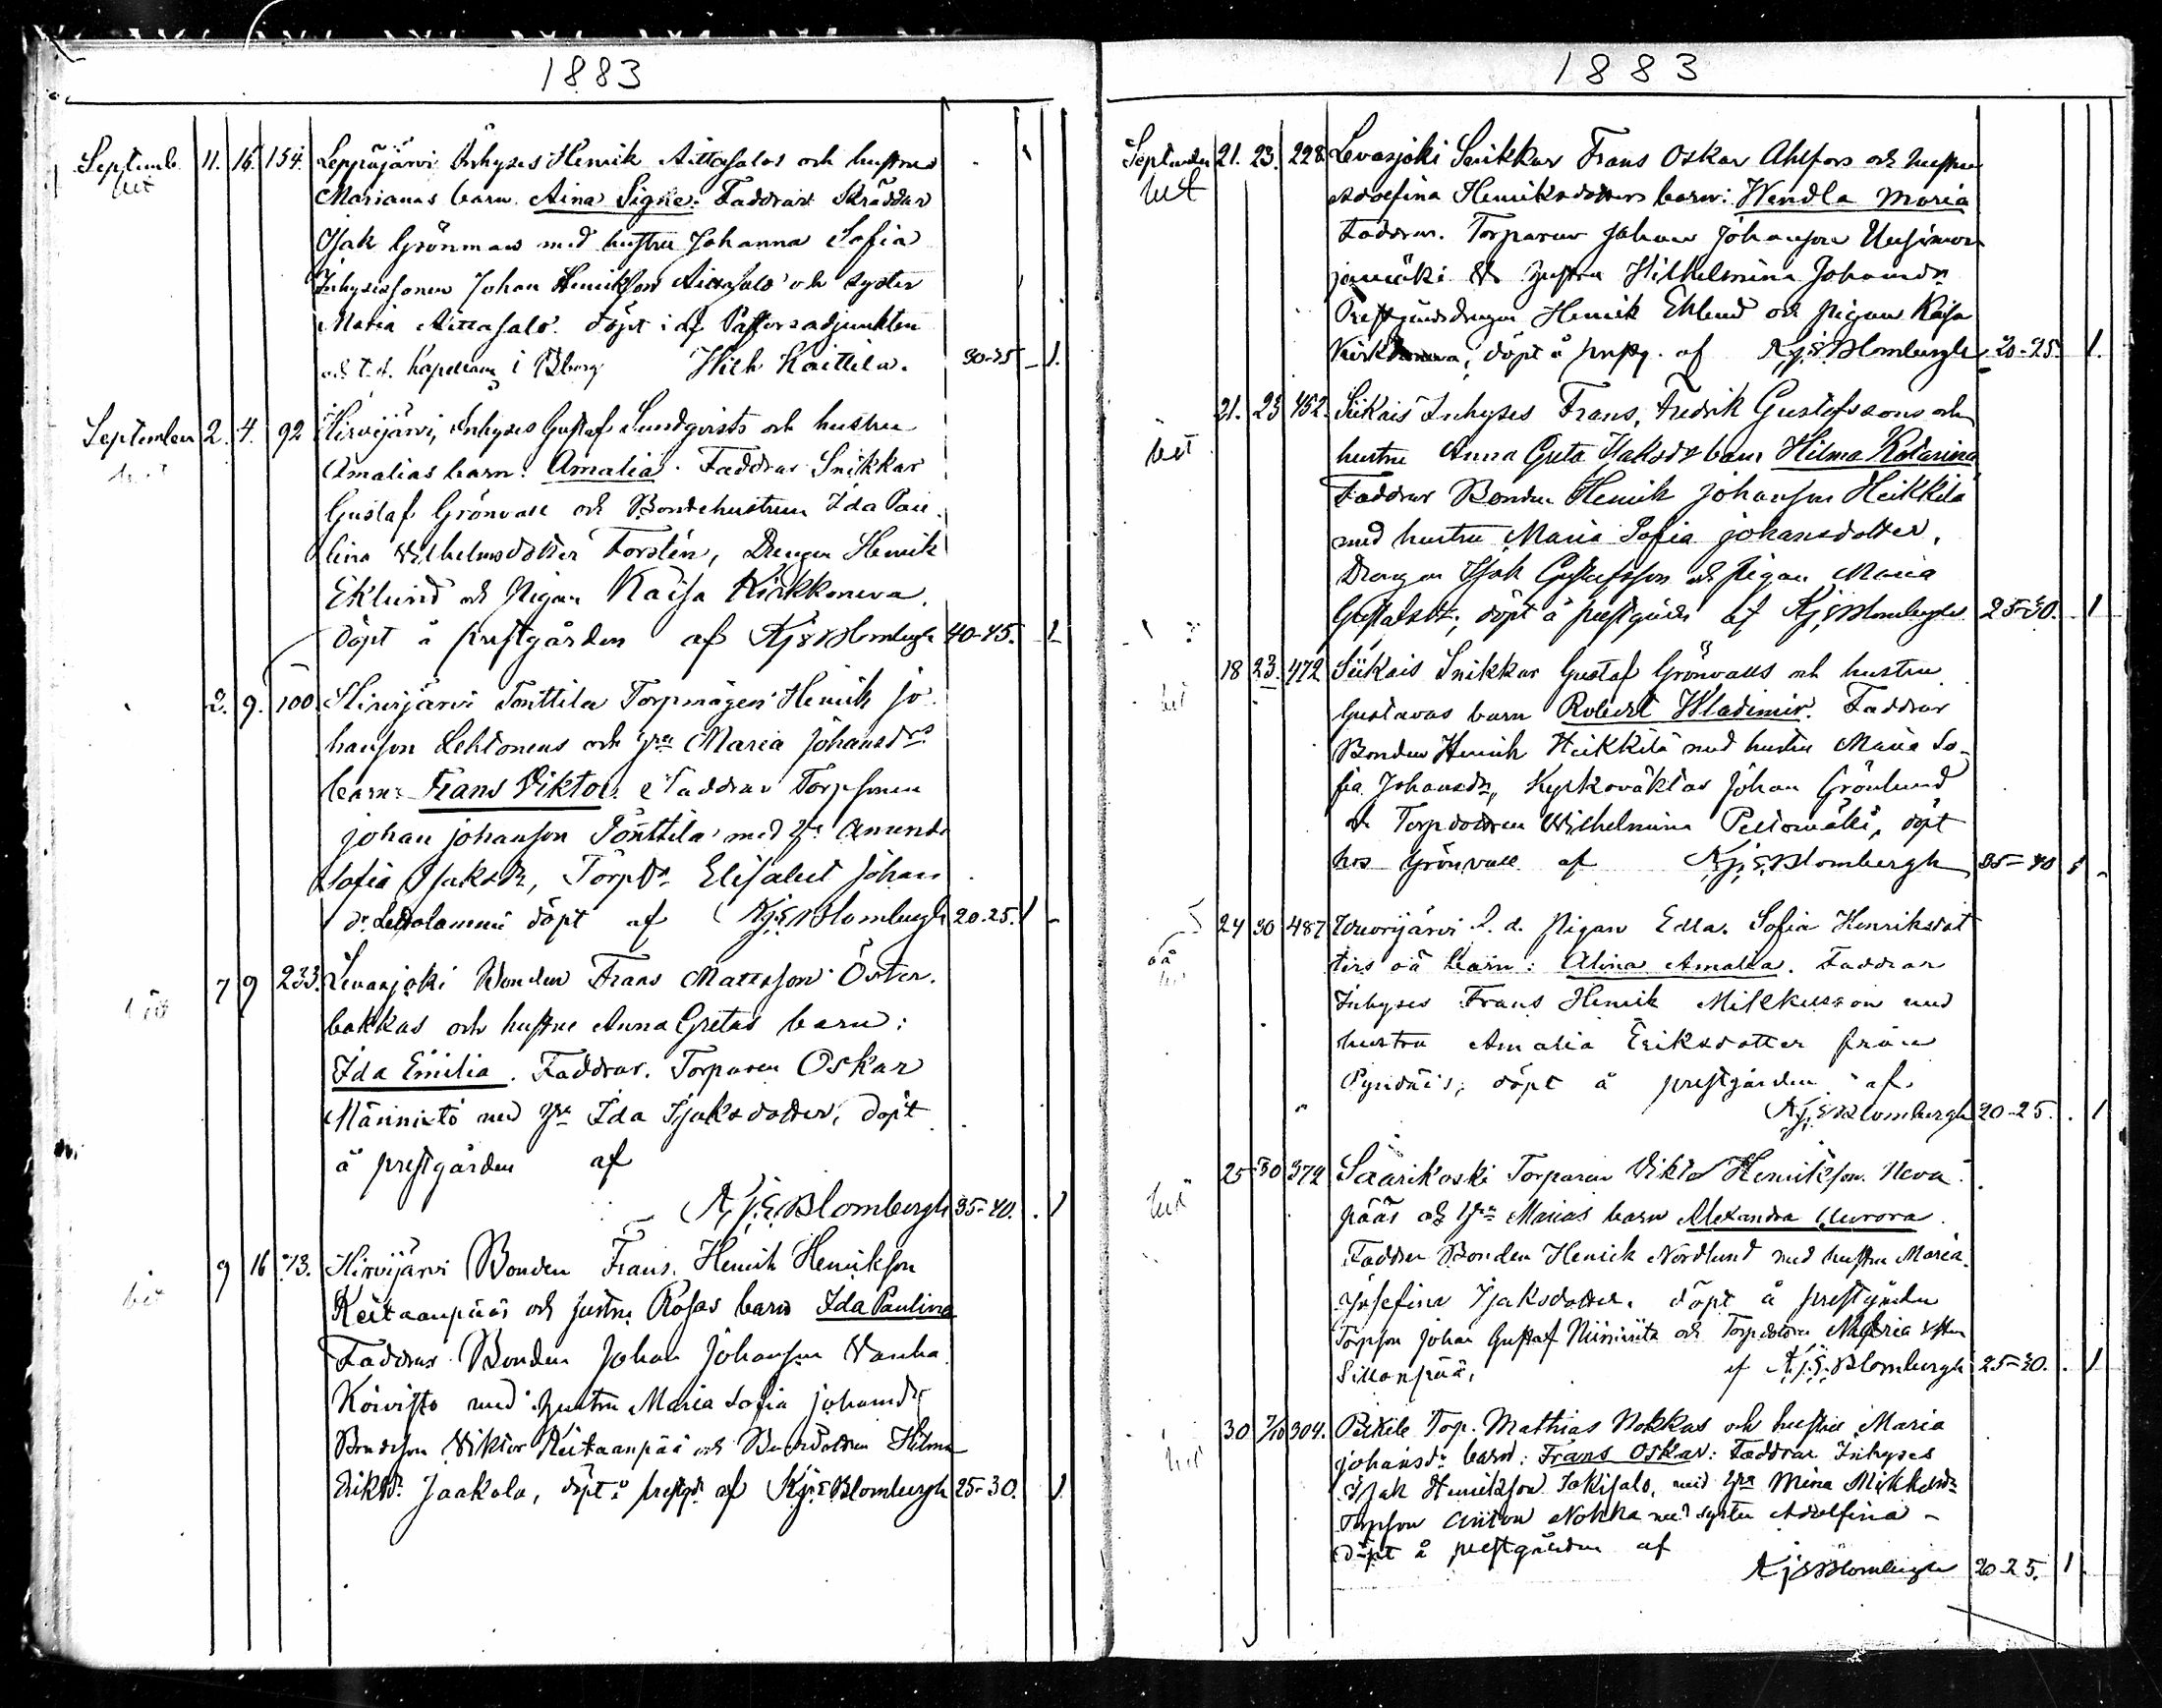 1883
Septemb. 11. 16. 154. Leppäjärvi Inhyses Henrik Aittasalos och hustrus
Marianas barn Aina Signe. Faddrar Skräddar
Isak Grönman med hustru Johanna Sofia
Inhysessonen Johan Henriksson Aittasalo och syster
Maria Aittasalo. döpt af Pastorsadjunkten
och t.d. Kapellan i Bborg Kaittila. 30-35 1.
September 2. 4. 92 Hirvijärvi, Inhyses Gustaf Sundqvists och hustru
Amalias barn: Amalia. Faddrar Snikkar
Gustaf Grönvall och Bondehustrun Ida Pau-
lina Wilhelmsdotter Forstén, Drengen Henrik
Eklund och Pigan Kaisa Kirkkoneva.
döpt å prestgården af Kj. E. Blombergh 40-45. 1
2. 9. 100 Hirvijärvi Torpmågen Henrik Jo-
hanson Lehtonens och hru Maria Johansdrs
barn: Frans Viktor. Faddrar Torpsonen
Johan Johanson Pönttilä med hu Amanda
Sofia Isaksdr, Torpdr. Elisabet Johans
dr döpt af Kj. E. Blombergh 20-25. 1
7 9 233. Levasjoki Bonden Frans Mattsson Öster-
bakkas och hustru Anna Gretas barn:
Ida Emilia. Faddrar. Torparen Oskar
Männistö med hru Ida Isaksdotter, döpt
å prestgården af
Kj. E. Blombergh 35-40. 1
9 16 73. Hirvijärvi Bonden Frans Henrik Henrikson
Keitaanpääs och hustru Rosas barn Ida Paulina
Faddrar Bonden Johan Johanson Vanha
Koivisto med hustru Maria Sofia Johansdr
Bondeson Viktor Keitaanpää och Bondedottren Hilma
Eriksdr. Jaakola, döpt å prestgd. af Kj. E. Blombergh 25-30. 1
1883
September 21. 23. 228. Levasjoki Snikkar Frans Oskar Ahlfors och hustru
Adolfina Henriksdotters barn: Wendla Maria
Faddrar. Torparen Johan Johanson Uusimon
jamäki & hustru Wilhelmina Johansdr
Prestgårdsdrengen Henrik Eklund och pigan Kaisa
döpt å prestg. af Kj. E. Blombergh 20-25. 1.
bet
21. 23 452. Siikais Inhyses Frans Fredrik Gustafssons och
bet
hustru Anna Greta Isaksdr barn Hilma Katarina
Faddrar Bonden Henrik Johanson Heikkilä
med hustru Maria Sofia Johansdotter,
Drengen Isak Gustafsson och Pigan Maria
Gustafsdr, döpt å prestgården af Kj. E. Blombergh 25-30. 1
18 23. 472 Siikais Snikkar Gustaf Grönvalls och hustru
Gustavas barn Robert Wladimir. Faddrar
Bonden Henrik Heikkilä med hustru Maria So-
fia Johansdr, Kyrkoväktar Johan Grönlund
och Torpdottren Wilhelmina Peltomäki, döpt
hos Grönvall af Kj. E. Blombergh 35-40 1
24 30 487 l. d. Pigan Edla Sofia Henriksdot
oä
ters oä barn: Alina Amalia. Faddrar
Inhyses Frans Henrik Mikkusson med
hustru Amalia Eriksdotter från
döpt å prestgården af
Kj. E. Blombergh 20-25. 1
25 30 372 Saarikoski Torparen Viktor Henrikson Neva-
bet
pääs och hru Marias barn Alexandra Aurora.
Faddrar Bonden Henrik Nordlund med hustru Maria
Josefina Isaksdotter. döpt å prestgården
Torpson Johan Gustaf Niininiita och Torpdottren Maria
Sillanpää, af Kj. E. Blombergh 25-30. 1
30 7/10 304. Torp. Mathias Nokkas och hustru Maria
Johansdr barn: Frans Oskar: Faddrar Inhyses
Isak Henrikson med hru Mina
Torpson Anton Nokka med syster Adolfina
döpt å prestgården af
Kj. E. Blombergh 20-25. 1